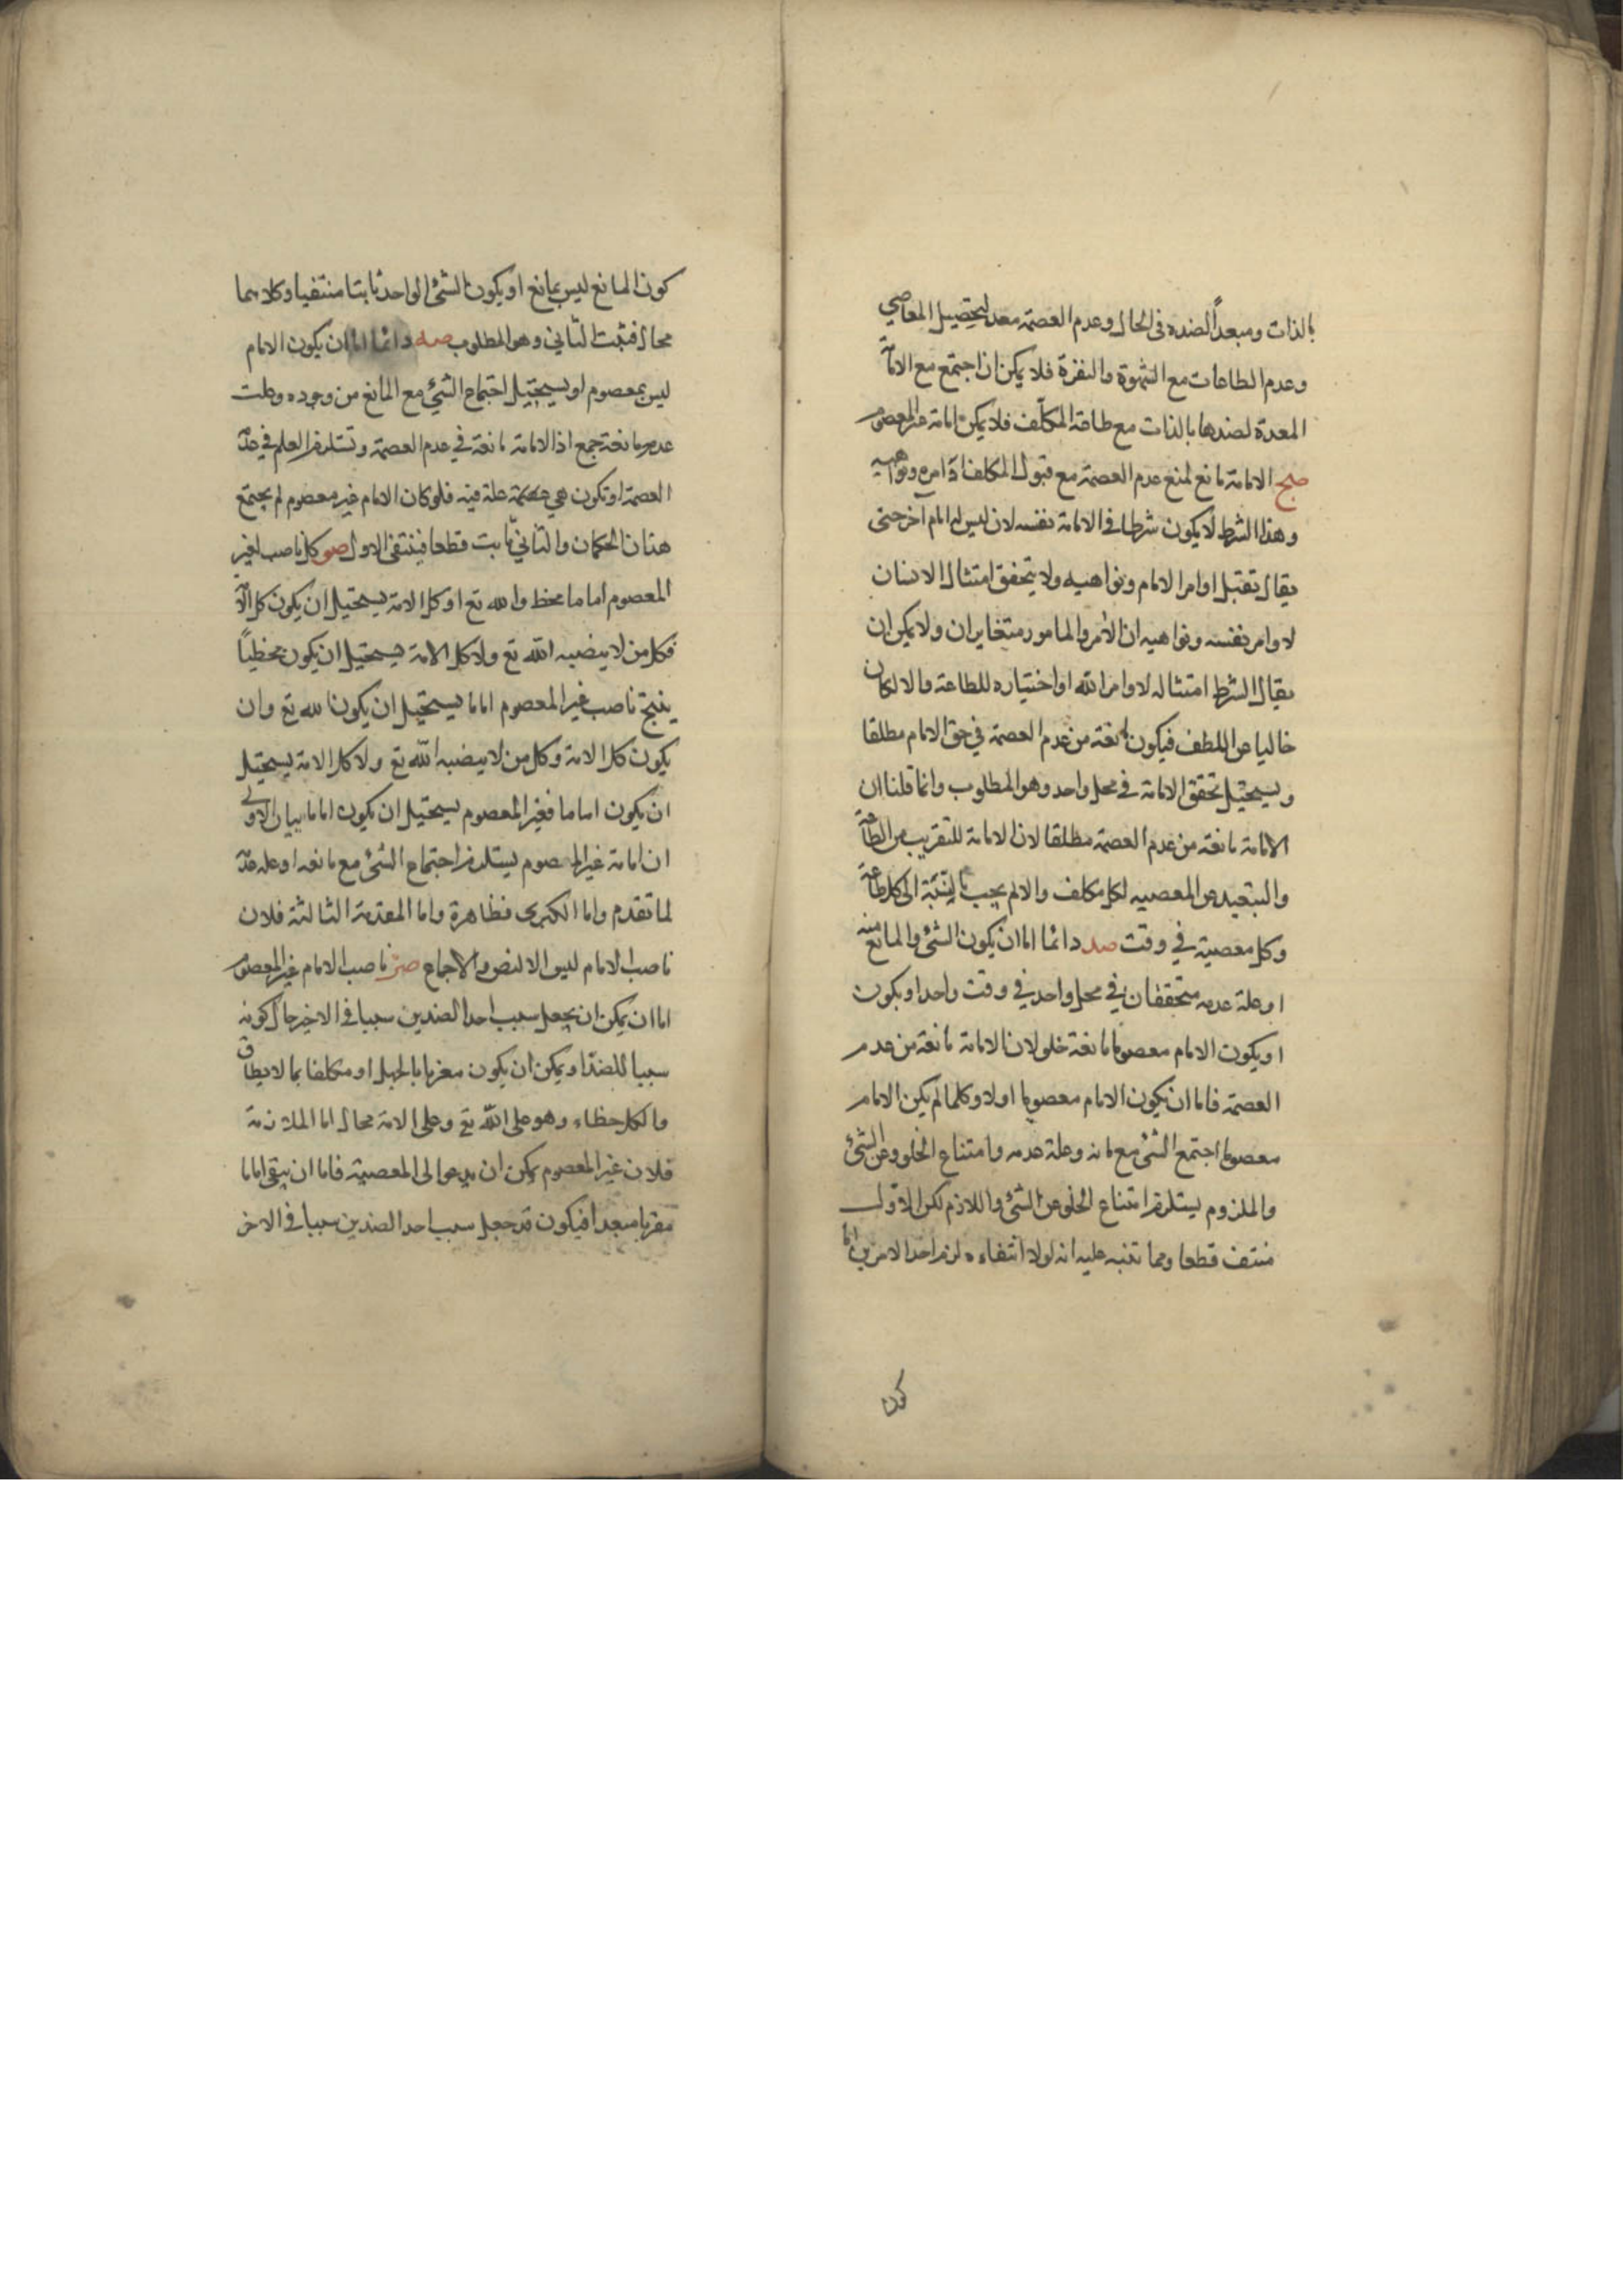 بالذات ومبعداً لضده فى الحال وعدم العصمة معد لتحصيل المعاصي
وعدم الطاعات مع الشهوة والنفرة فلا يمكن ان اجتمع مع الامامة
المعدة لضدها بالذات مع طاعة المكلف فلا يمكن امامة غير المعصوم
صج الامامة مانع لمنع عدم العصمة مع قبول المكلف اوامره ونواهيه
وهذا الشرط لا يكون شرطا فى الامامة نفسه لان ليس له امام اخر حتى
يقال تقبل اوامر الامام ونواهيه ولا يتحقق امتثال الانسان
لاوامر نفسه ونواهيه اذ الامر والمامور متغايران ولا يمكن ان
يقال الشرط امتثاله لاوامر الله او اختياره للطاعة والا لكان
خاليا عن اللطف فيكون مانعة من عدم العصمة في حق الامام مطلقا
ويستحيل تحقق الامامة فى محل واحد وهو المطلوب وانما قلنا ان
الامامة مانعة من عدم العصمة مطلقا لان الامامة للتقريب من الطاعة
والتبعيد عن المعصيه لكل مكلف والا لم يجب بالنسبة الى كل طاعة
وكل معصية في وقت صد دائما اما ان يكون الشئ والمانع منه
او علة عدمه متحققان في محل واحد في وقت واحد او يكون
او يكون الامام معصوما مانعة خلو لان الامامة مانعة من عدم
العصمة فاما ان يكون الامام معصوما اولا وكلما لم يكن الامام
معصوما اجتمع الشئ مع مانه وعلة عدمه وامتناع الخلو وعن الشئ
والملزوم يستلزم امتناع الخلو عن الشئ واللازم لكن الاول
منتف قطعا ومما تنبه عليه انه لولا انتفاءه لزم احد الامرين اما
كون
كون المانع ليس بمانع او يكون الشئ الواحد ثابتا منتفيا وكلاهما
محال فثبت الثاني وهو المطلوب صه دائما اما ان يكون الامام
ليس بمعصوم او يستحيل اجتماع الشئ مع المانع من وجوده وعلت
عدمه مانعة جمع اذ الامامة مانعة في عدم العصمة وتستلزم العلم في عدم
العصمة او تكون هي حكمة علة فيه فلو كان الامام غير معصوم لم يجتمع
هذان الحكمان والثاني ثابت قطعا فينتفى الاول صو كل ناصب لغير
المعصوم اماما مخط والله تع او كل الامة يستحيل ان يكون كل الامة
فكل من لا ينصبه الله تع ولا كل الامة يستحيل ان يكون مخطياً
ينتج ناصب غير المعصوم اماما يستحيل ان يكون الله تع وان
يكون كل الامة وكل من لا ينصبه الله تع ولا كل الامة يستحيل
ان يكون اماما فغير المعصوم يستحيل ان يكون اماما بيان الاولى
ان امامة غير المعصوم يستلزم اجتماع الشئ مع مانعه او علة عدمه
لما تقدم واما الكبرى فظاهرة واما المقدمة الثالثة فلان
ناصب الامام ليس الا لنص والاجماع صز ناصب الامام غير المعصوم
اما ان يمكن ان يجعل سبب احد الضدين سببا فى الاخر حال كونه
سببا للضد او يمكن ان يكون مغريا بالجهل او مكلفا بما لا يطاق
والكل خطاء وهو على الله تع وعلى الامة محال اما الملازمة
فلان غير المعصوم يمكن ان يدعوا الى المعصية فاما ان يبقى اماما
مقربا مبعدا فيكون قد جعل سبب احد الضدين سببا فى الاخر